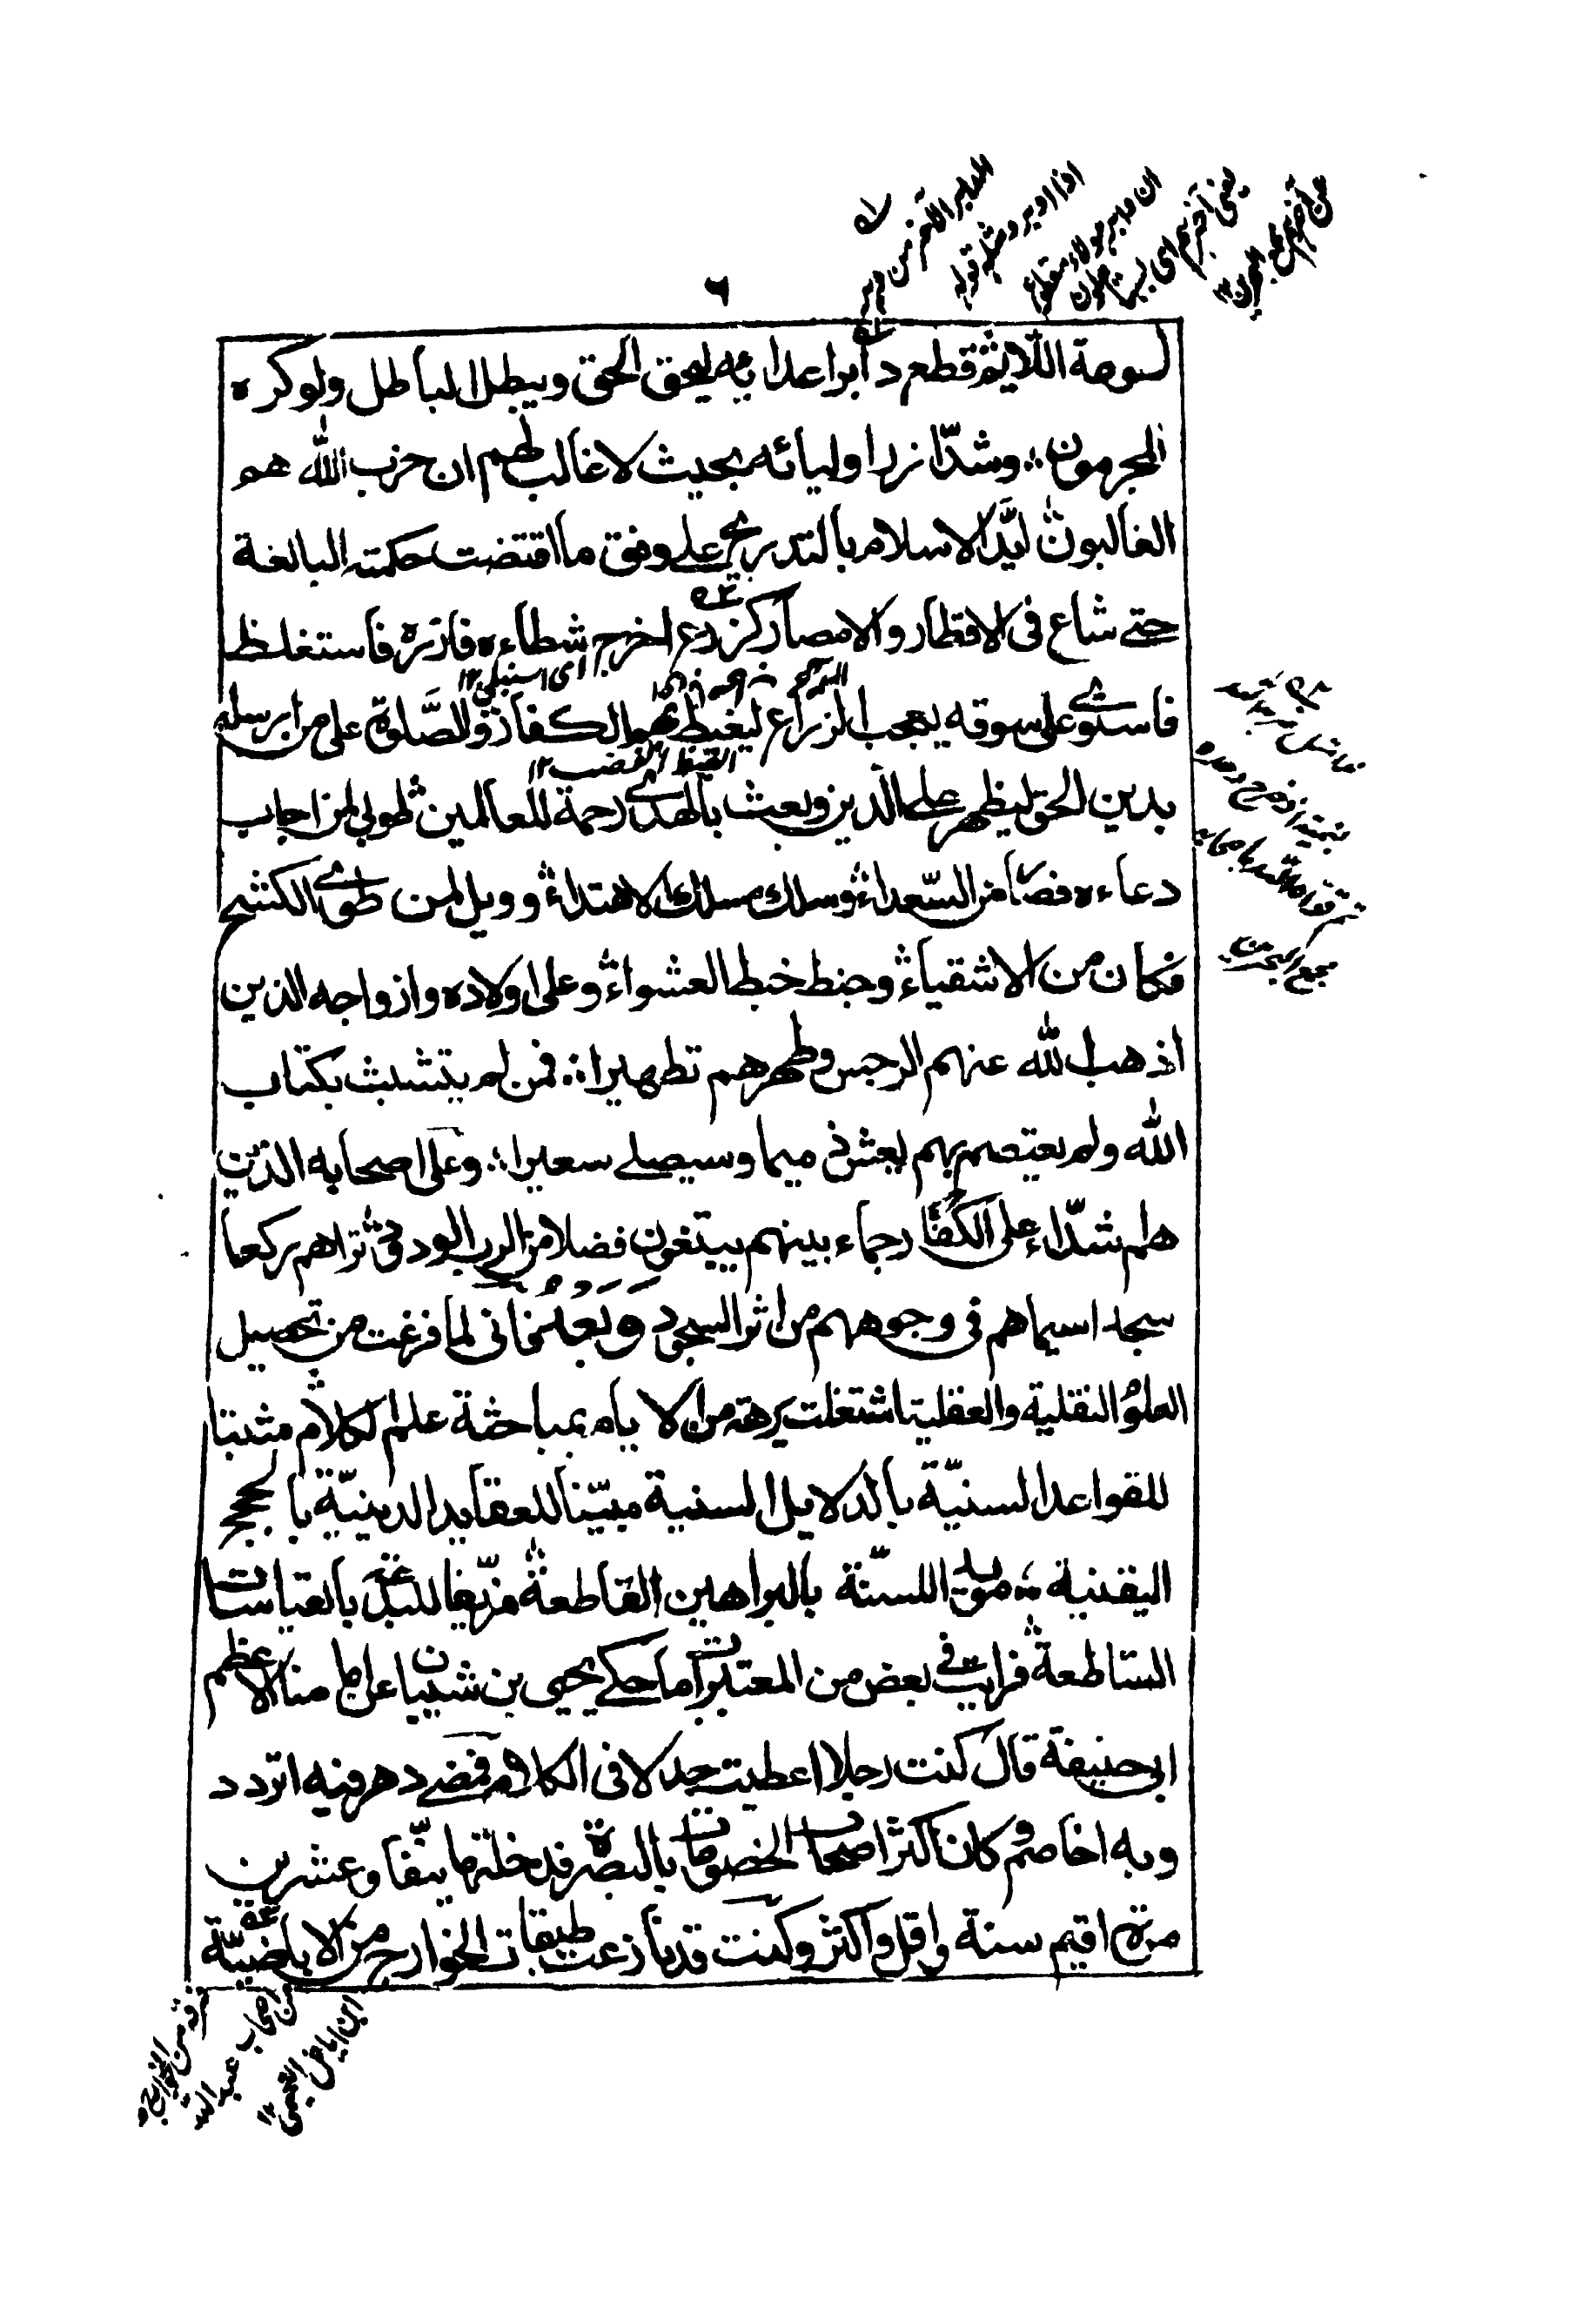 ٦
لسومة اللايم قطع دابر اعدائه ليحق الحق ويبطل الباطل ولو كره
المجرمون وشد ازر اوليائه بحيث لا غالب لهم ان حزب الله هم
الغالبون ايد الاسلام بالتدريج على وفق ما اقتضت حكمته البالغة
حتى شاع فى الاقطار والامصار كزرع اخرج شطاءه فازره فاستغلظ
اى اسنبل ١٢
فاستوى على سوقه يعجب الزراع ليغيظ بهم الكفار والصلوة على من ارسله
الغيظ الغضب ١٢
بدين الحق ليظهر على الدين وبعث بالهدى رحمة للعالمين طوبى لمن اجاب
دعاءه فصار من السعداء وسلك مسلك الاهتداء وويل لمن طوى الكشح
فكان من الاشقياء وخبط خبط العشواء وعلى اولاده وازواجه الذين
اذهب الله عنهم الرجس وطهرهم تطهيرا فمن لم يتشبث بكتاب
الله ولم يعتصم بهم يعثر فى ميما وسيصلى سعيرا وعلى اصحابه الذين
هم اشداء على الكفار رحماء بينهم يبتغون فضلا من الرب الودود تراهم ركعا
سجدا سيماهم فى وجوههم من اثر السجود وبعد فانى لما فرغت من تحصيل
العلوم النقلية والعقلية اشتغلت برهة من الايام بمباحثة علم الكلام مثبتا
للقواعد السنيّة بالدلايل السنية مبيّنا للعقايد الدينيّة بالحجج
اليقينية مويدا للسنّة بالبراهين القاطعة مزيّفا للبدعة بالقياسات
الساطعة فرايت فى بعض من المعتبرات ما حكى يحيى بن شيبان عن امامنا الاعظم
ابى حنيفة قال كنت رجلا اعطيت جدلا فى الكلام فمضى دهر فيه اتردد
وبه اخاصم وكان اكثر اصحاب الخصومات بالبصرة فدخلتها نيّفا وعشرين
مرة اقيم سنة واقل واكثر وكنت قد نازعت طبقات الخوارج من الاباضيّة
فرقة من الخوارج
من اصحاب عبد الله
ابن اباض التميمى ١٢